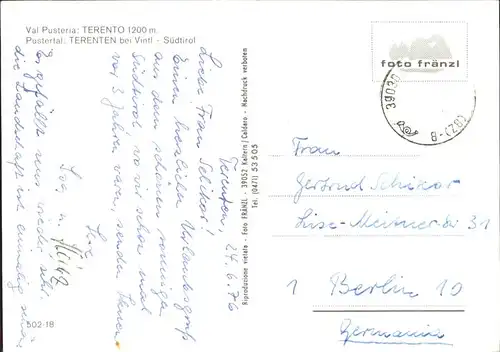 Val Pusteria: TERENTO 1200 m.
Pustertal: TERENTEN bei Vintl - Südtirol
Terenten, 24.6.76
Liebe Frau Schikor!
Einen herzlichen Urlaubsgruß
aus dem schönen sonnigen
Südtirol, wo wir schon mal
vor 3 Jahren waren, senden Ihnen
Es gefällt uns wieder sehr.
die Landschaft ist einmalig schön.
502-18
Riproduzione vietata - Foto FRÄNZL - 39052 Kaltern / Caldaro - Nachdruck verboten
Tel. (0471) 53505
foto fränzl
39030
(BZ) - 8
Frau
Gertrud Schikor
Lise-Meitner 31
1 Berlin 10
Germania